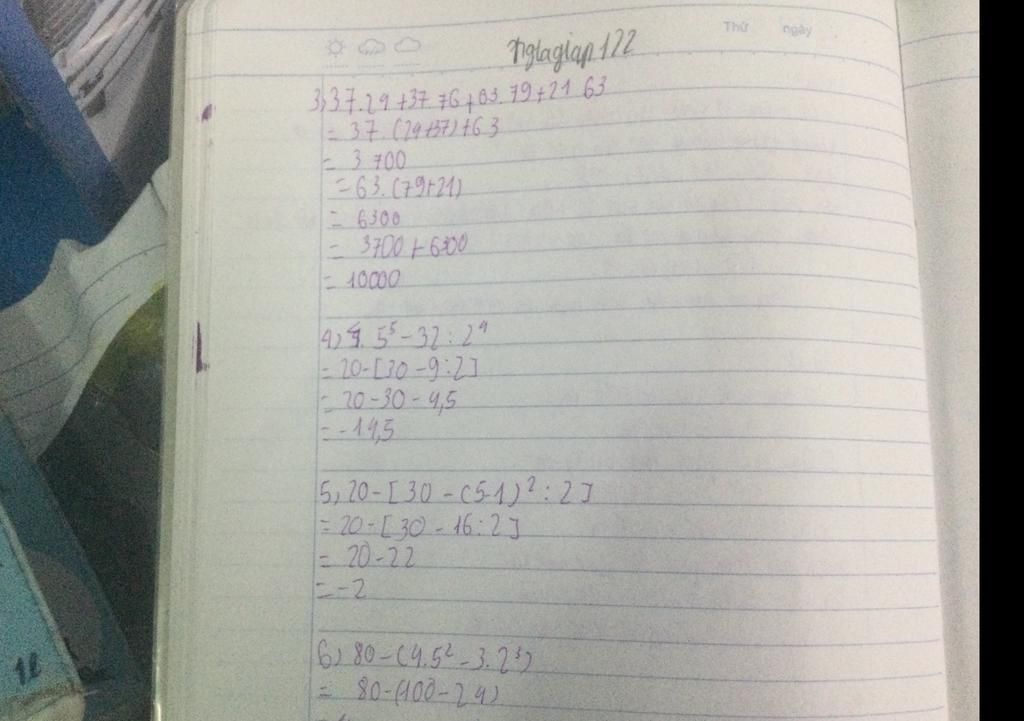 Thứ ngày
nglagiap.122
3) 37.24+37 76+63.79+21 63
= 37.(24+37)+63
= 3 700
= 63.(79+21)
= 6300
= 3700+6300
= 10000
4) 4. 5⁵-32:2⁴
= 20-[30-9:2]
= 20-30-4,5
= -14,5
5) 20-[30-(5-1)²:2]
= 20-[30-16:2]
= 20-22
= -2
6) 80-(4.5²-3.2³)
= 80-(100-24)